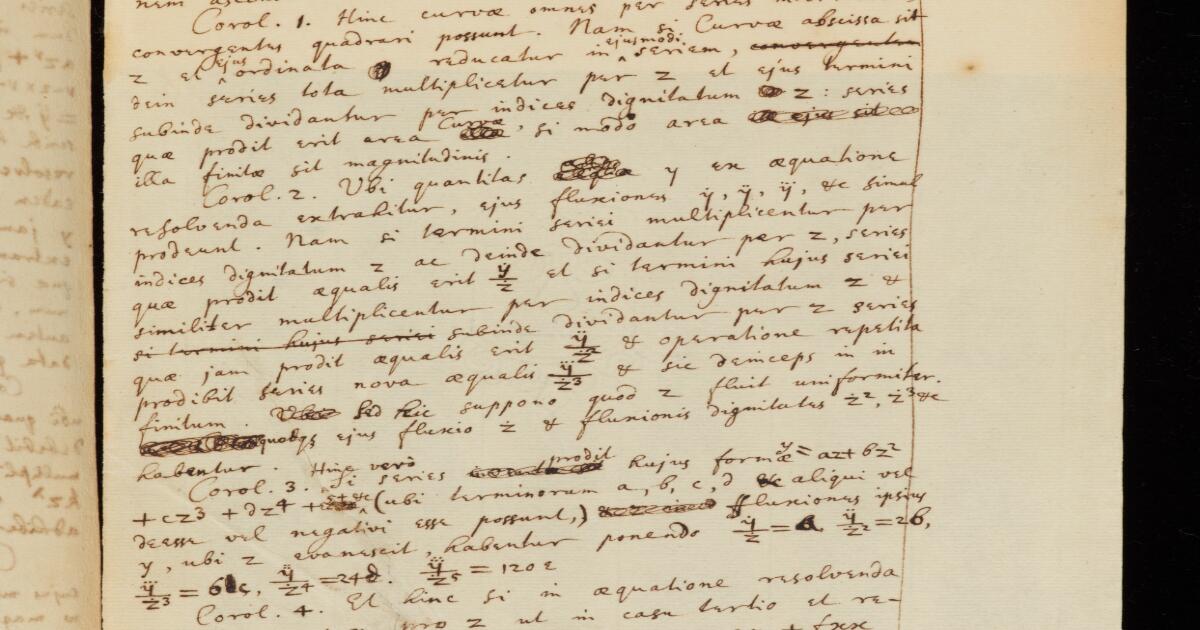 Corol. 1. Hinc curvæ omnes per series
convergentes quadrari possunt. Nam si Curvæ abscissa sit
z et ejus ordinata reducatur in ejusmodi seriem, convergentem
dein series tota multiplicetur per z et ejus termini
subinde dividantur per indices dignitatum z: series
quæ prodit erit area Curvæ, si modo area
illa finitæ sit magnitudinis.
Corol. 2. Ubi quantitas y ex æquatione
resolvenda extrahitur, ejus fluxiones ẏ, ÿ, &c simul
prodeunt. Nam si termini seriei multiplicentur per
indices dignitatum z ac deinde dividantur per z, series
quæ prodit æqualis erit ẏ/ż et si termini hujus seriei
similiter multiplicentur per indices dignitatum z &
si termini hujus seriei subinde dividantur per z series
quæ jam prodit æqualis erit ÿ/ż² & operatione repetita
prodibit series nova æqualis /ż³ & sic deinceps in in
finitum. Sed hic suppono quod z fluit uniformiter.
ejus fluxio ż & fluxionis dignitates ż², ż³ &c
habentur.
Corol. 3. Hinc vero si series prodit hujus formæ y = az + bz²
+ cz³ + dz⁴ + (ubi terminorum a, b, c, d aliqui vel
deesse vel negativi esse possunt,) fluxiones ipsius
y, ubi z evanescit, habentur ponendo ẏ/ż = ÿ/ż² = 2b,
/ż³ = 6c, /ż⁴ = 24d. /ż⁵ = 120e
Corol. 4. Et hinc si in æquatione resolvenda
pro z ut in casu tertio et re-